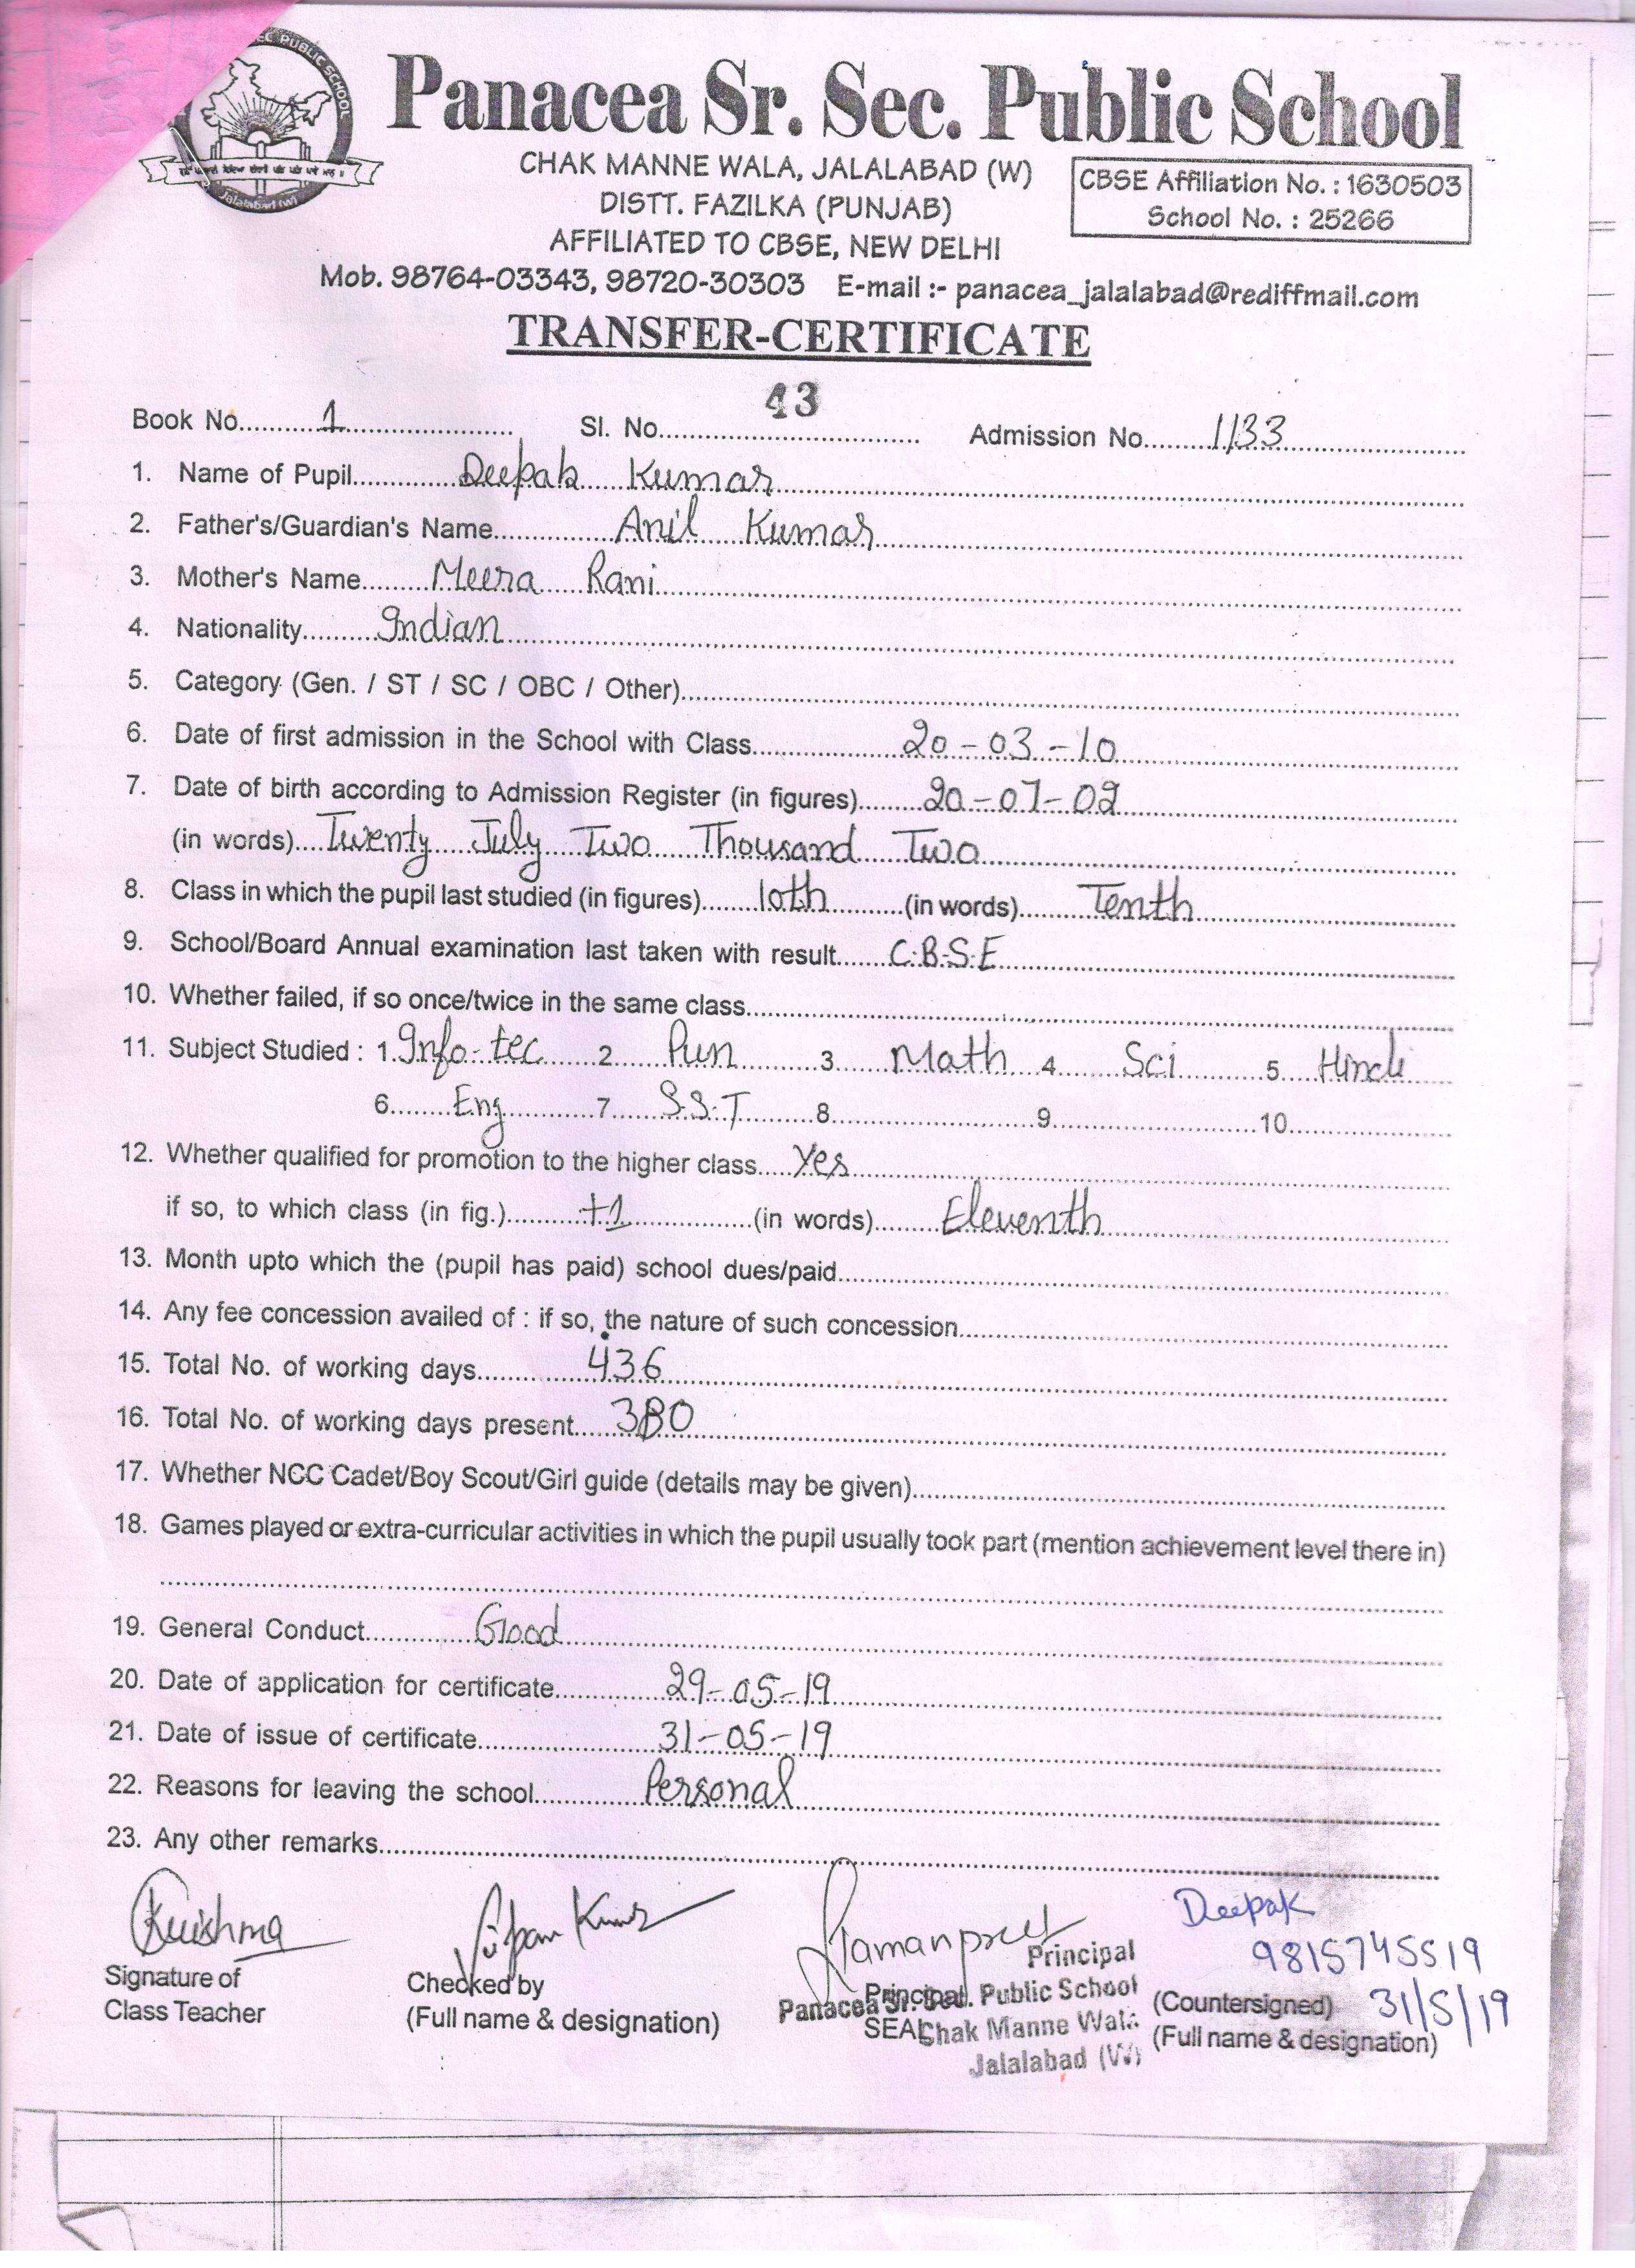 SEC PUBLIC SCHOOL
Jalalabad (W)
Panacea Sr. Sec. Public School
CHAK MANNE WALA, JALALABAD (W)
DISTT. FAZILKA (PUNJAB)
AFFILIATED TO CBSE, NEW DELHI
CBSE Affiliation No. : 1630503
School No. : 25266
Mob. 98764-03343, 98720-30303 E-mail :- panacea_jalalabad@rediffmail.com
TRANSFER-CERTIFICATE
Book No. 1 Sl. No. 43 Admission No. 1133
1. Name of Pupil Deepak Kumar
2. Father's/Guardian's Name Anil Kumar
3. Mother's Name Meera Rani
4. Nationality Indian
5. Category (Gen. / ST / SC / OBC / Other)
6. Date of first admission in the School with Class 20-03-10
7. Date of birth according to Admission Register (in figures) 20-07-02
(in words) Twenty July Two Thousand Two
8. Class in which the pupil last studied (in figures) 10th (in words) Tenth
9. School/Board Annual examination last taken with result C.B.S.E
10. Whether failed, if so once/twice in the same class
11. Subject Studied : 1. Info-tec 2 Pun 3 Math 4 Sci 5 Hindi
6 Eng 7 S.S.T 8 9 10
12. Whether qualified for promotion to the higher class Yes
if so, to which class (in fig.) +1 (in words) Eleventh
13. Month upto which the (pupil has paid) school dues/paid
14. Any fee concession availed of : if so, the nature of such concession
15. Total No. of working days 436
16. Total No. of working days present 380
17. Whether NCC Cadet/Boy Scout/Girl guide (details may be given)
18. Games played or extra-curricular activities in which the pupil usually took part (mention achievement level there in)
19. General Conduct Good
20. Date of application for certificate 29-05-19
21. Date of issue of certificate 31-05-19
22. Reasons for leaving the school Personal
23. Any other remarks
Karishma Kumar Ramanpreet Deepak
Principal 9815745519
Signature of Checked by Principal
Class Teacher (Full name & designation) SEAL
Panacea Sr. Sec. Public School
Chak Manne Wala
Jalalabad (W)
(Countersigned) 31/5/19
(Full name & designation)